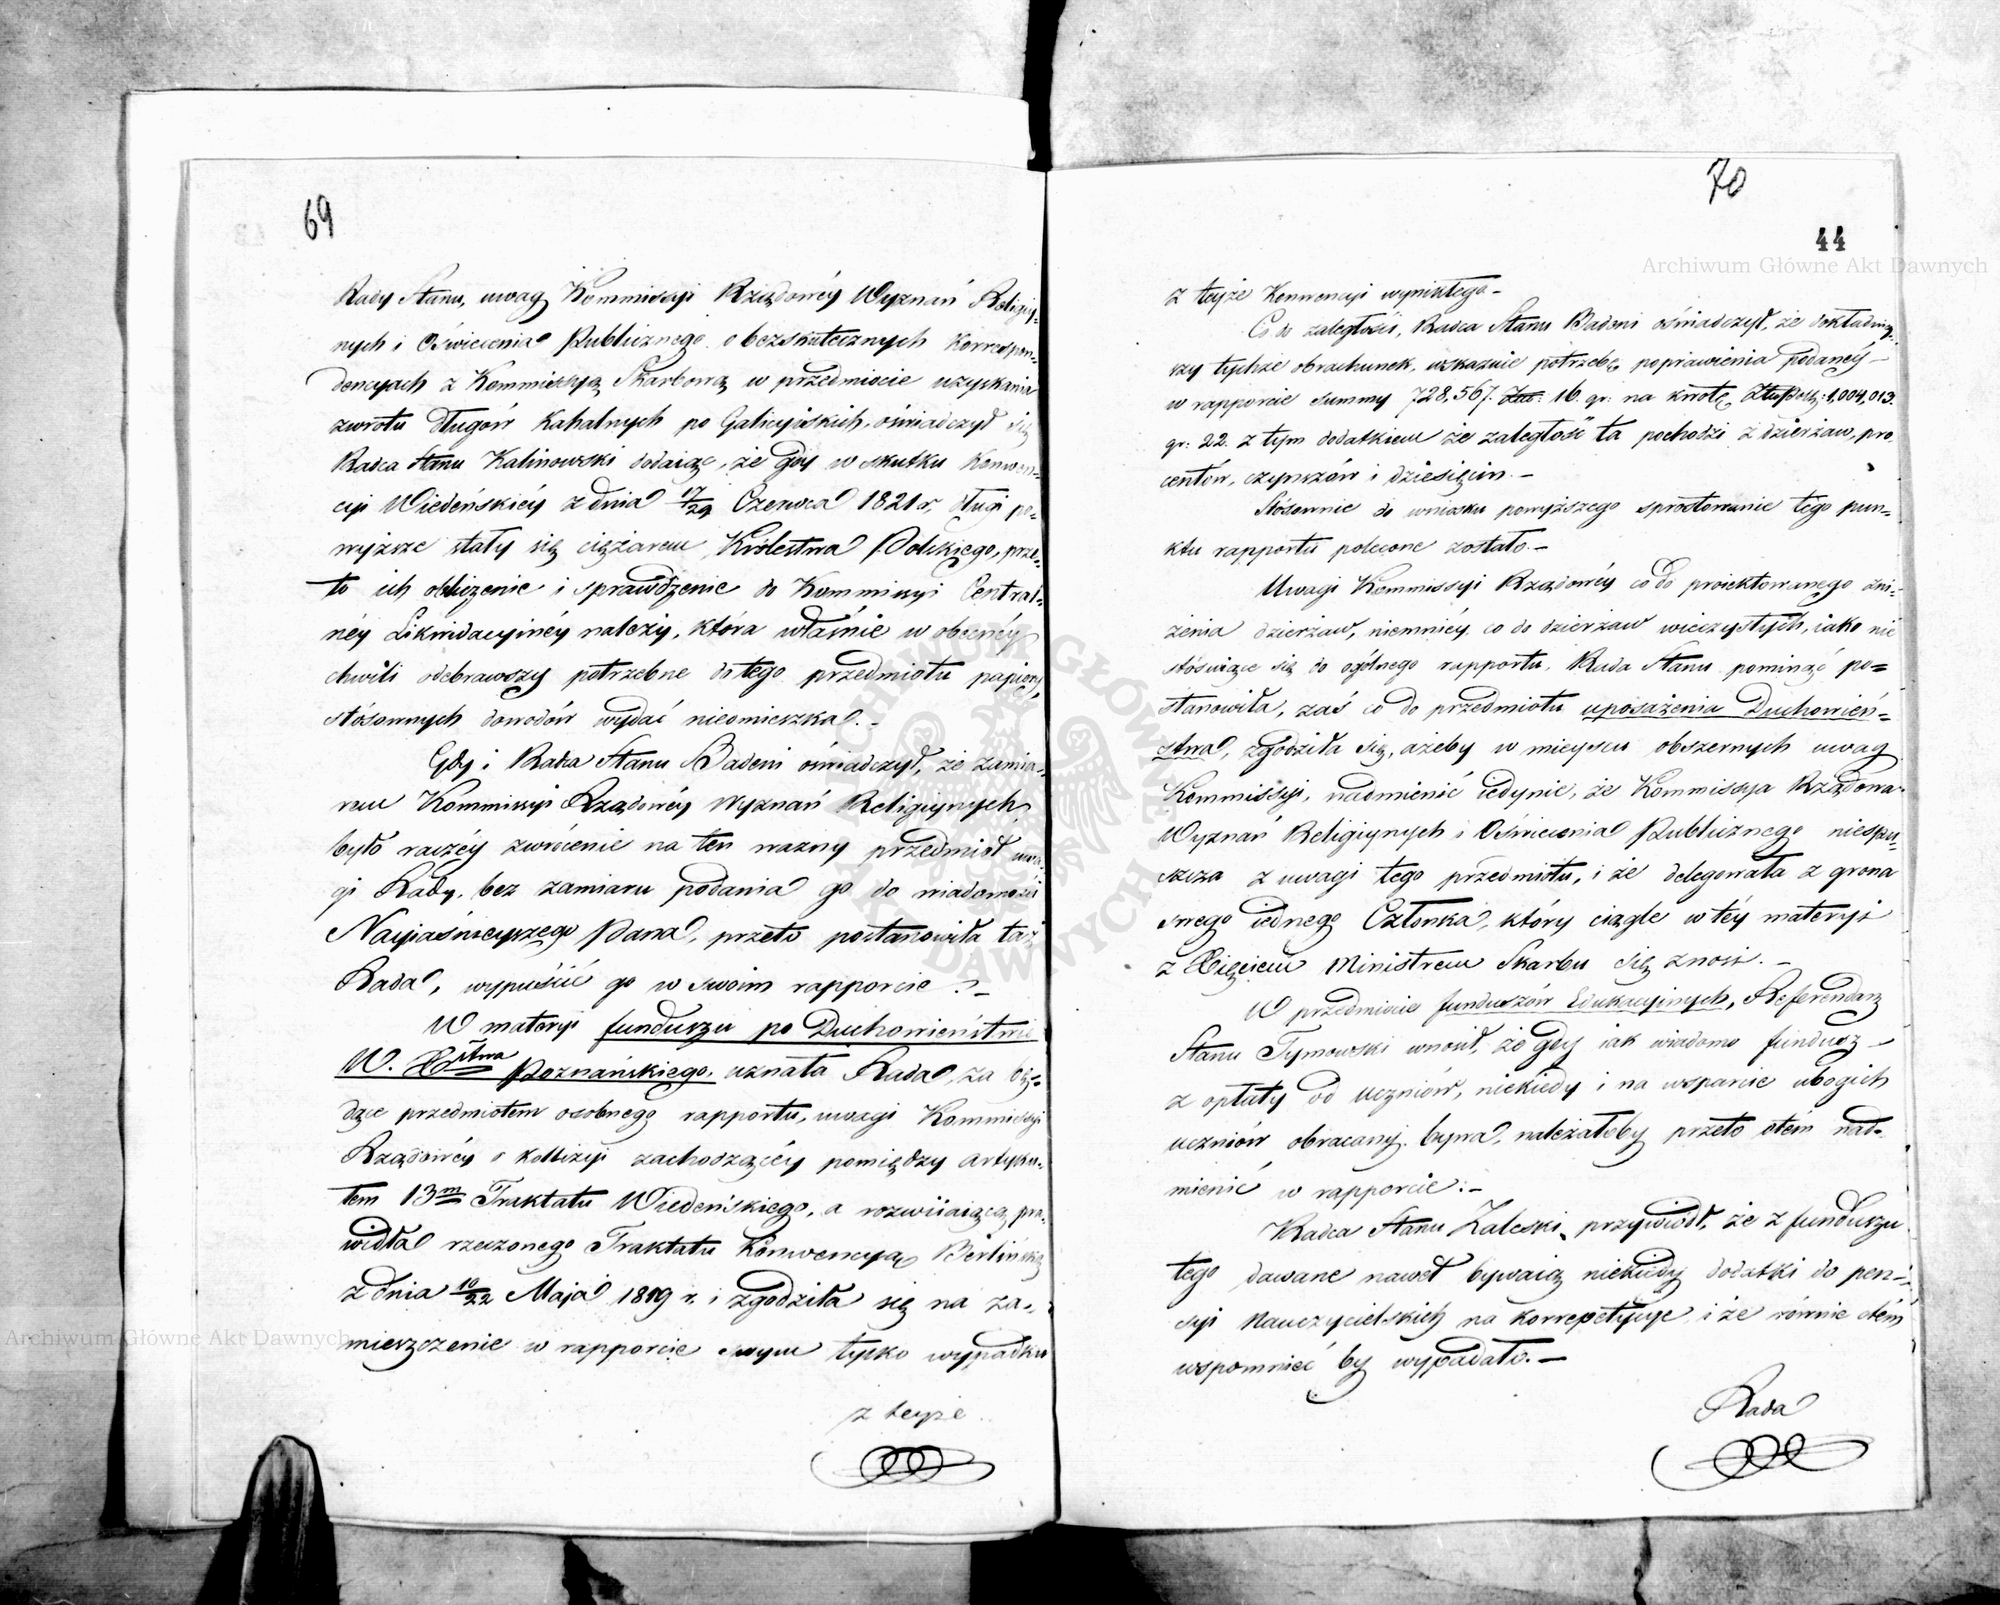 69
Rady Stanu, uwag Kommissyi Rządowéy Wyznań Religiy-
nych i Oświecenia Publicznego o bezskutecznych korrespon-
dencyach z Kommissyą Skarbową w przedmiocie uzyskania
zwrotu długów Kahalnych po Galicyiskich, oświadczył się
Radca Stanu Kalinowski dodaiąc, że gdy w skutku Konwen-
cyi Wiedeńskiéy z dnia 17/29 Czerwca 1821 r. długi po-
wyższe stały się ciężarem Królestwa Polskiego, prze-
to ich obliczenie i sprawdzenie do Kommissyi Central-
néy Likwidacyinéy należy, która właśnie w obecnéy
chwili odebrawszy potrzebne do tego przedmiotu papiery,
stósownych dowodów wydać nieomieszka. -
Gdy i Radca Stanu Badeni oświadczył, że zamia-
rem Kommissyi Rządowéy Wyznań Religiynych
było raczéy zwrócenie na ten ważny przedmiot uwa-
gi Rady, bez zamiaru podania go do wiadomości
Nayiaśnieyszego Pana, przeto postanowiła taż
Rada, wypuścić go w swoim rapporcie. -
W materyi funduszu po Duchowieństwie
W. Xstwa Poznańskiego, uznała Rada, za bę-
dące przedmiotem osobnego rapportu, uwagi Kommissyi
Rządowéy o kollizyi zachodzącéy pomiędzy artyku-
łem 13m Traktatu Wiedeńskiego, a rozwiiaiącą pra-
widła rzeczonego Traktatu Konwencyą Berlińską
z dnia 10/22 Maja 1819 r. i zgodziła się na za-
mieszczenie w rapporcie swym tylko wypadku
z teyże
70
44
z teyże Konwencyi wynikłego -
Co do zaległości, Radca Stanu Badeni oświadczył, że dokładniey-
szy tychże obrachunek, wskazuie potrzebę poprawienia podanéy
w rapporcie summy 728,567. Złt: 16 gr: na kwotę Złt. Pols: 1,004,013.
gr: 22. z tym dodatkiem że zaległość ta pochodzi z dzierżaw, pro-
centów, czynszów i dziesięcin. -
Stósownie do wniosku powyższego sprostowanie tego pun-
ktu rapportu polecone zostało. -
Uwagi Kommissyi Rządowéy co do proiektowanego zni-
żenia dzierżaw, niemniéy co do dzierżaw wieczystych, iako nie
stósuiące się do ogólnego rapportu, Rada Stanu pominąć po-
stanowiła, zaś co do przedmiotu uposażenia Duchowień-
stwa, zgodziła się, ażeby w mieyscu obszernych uwag
Kommissyi, nadmienić iedynie, że Kommissya Rządowa
Wyznań Religiynych i Oświecenia Publicznego niespu-
szcza z uwagi tego przedmiotu, i że delegowała z grona
swego iednego Członka, który ciągle w téy materyi
z Xięciem Ministrem Skarbu się znosi. -
W przedmiocie funduszów Edukacyinych, Referendarz
Stanu Tymowski wnosił, że gdy iak wiadomo fundusz
z opłaty od uczniów, niekiedy i na wsparcie ubogich
uczniów obracany bywa, należałoby przeto otém nad-
mienić w rapporcie. -
Radca Stanu Zaleski, przywiódł, że z funduszu
tego dawane nawet bywaią niekiedy dodatki do pen-
syi Nauczycielskich na korrepetycye i że równie otém
wspomnieć by wypadało. -
Rada
Archiwum Główne Akt Dawnych
Archiwum Główne Akt Dawnych
ARCHIWUM GŁÓWNE AKT DAWNYCH